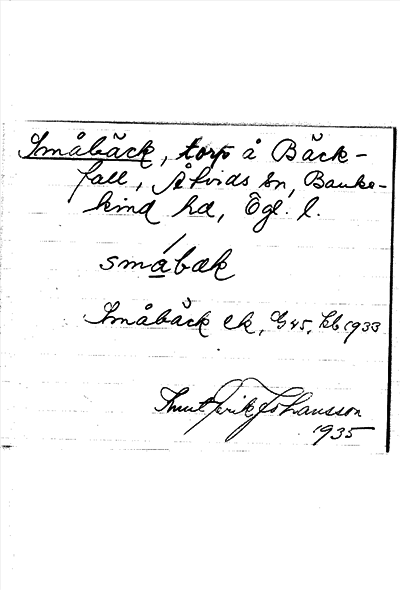 Småbäck, torp å Bäck-
fall, Åtvids sn, Banke-
kind hd, Ögl. l.
småbæk
Småbäck ek, G45, Kb 1933
Knut Erik Johansson
1935